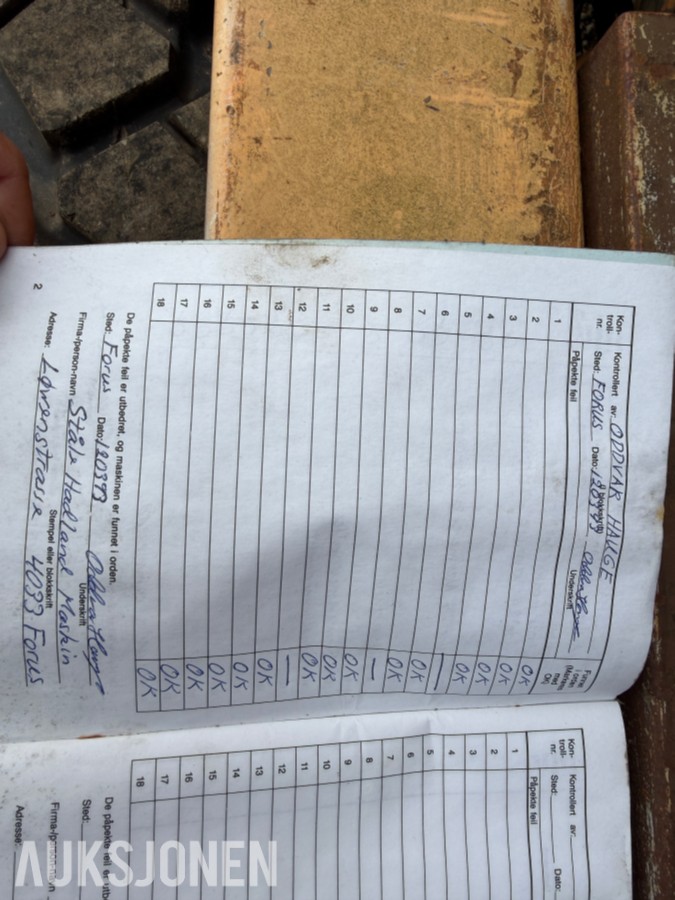 Kon-
troll-
nr.
Kontrollert av: ODDVAR HAUGE
Sted: FORUS Dato: 120393
Underskrift
Påpekte feil
Funnet
i orden
(Merkes
med
OK)
1 OK
2 OK
3 OK
4 OK
5 OK
6 —
7 OK
8 OK
9 —
10 OK
11 OK
12 OK
13 —
14 OK
15 OK
16 OK
17 OK
18 OK
De påpekte feil er utbedret, og maskinen er funnet i orden.
Sted: Forus Dato: 120393
Underskrift
Firma-/person-navn Ståle Hadland Maskin
Stempel eller blokkskrift
Adresse: Løwenstrasse 4033 Forus
2
Kon-
troll-
nr.
Kontrollert av:
Sted: Dato:
Påpekte feil
1
2
3
4
5
6
7
8
9
10
11
12
13
14
15
16
17
18
De påpekte feil er utb
Sted:
Firma-/person-navn
Adresse:
AUKSJONEN